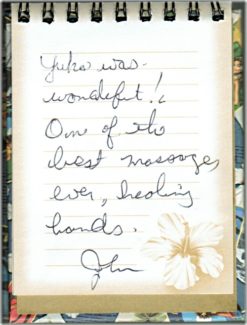 Yuka was
wonderful!!
One of the
best massages
ever, healing
hands.
John